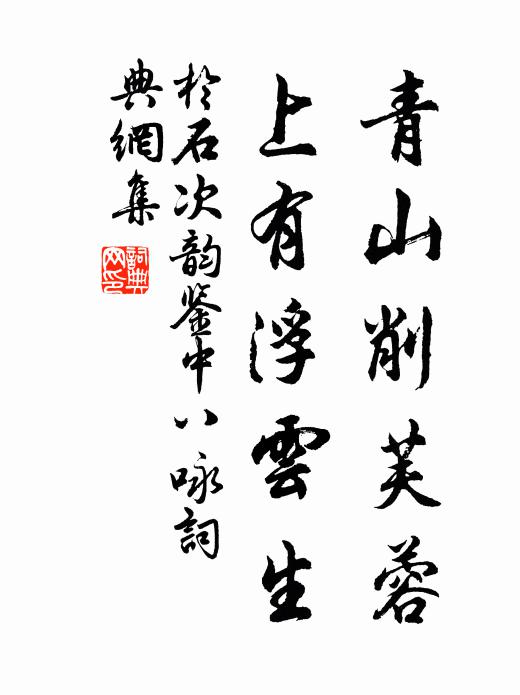 青山削芙蓉
上有浮雲生
於石次韵鉴中八咏詞
典網集
詞典
网印